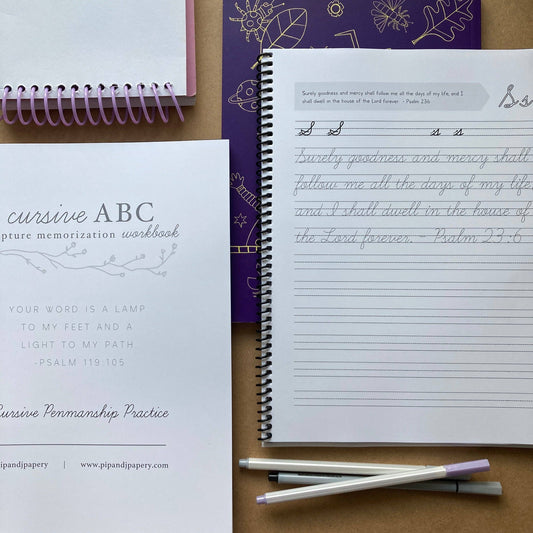 cursive ABC
pture memorization workbook
YOUR WORD IS A LAMP
TO MY FEET AND A
LIGHT TO MY PATH
-PSALM 119:105
Cursive Penmanship Practice
pipandjpapery | www.pipandjpapery.com
Surely goodness and mercy shall follow me all the days of my life, and I
shall dwell in the house of the Lord forever. - Psalm 23:6
Ss
S S s s
Surely goodness and mercy shall
follow me all the days of my life,
and I shall dwell in the house of
the Lord forever. - Psalm 23:6